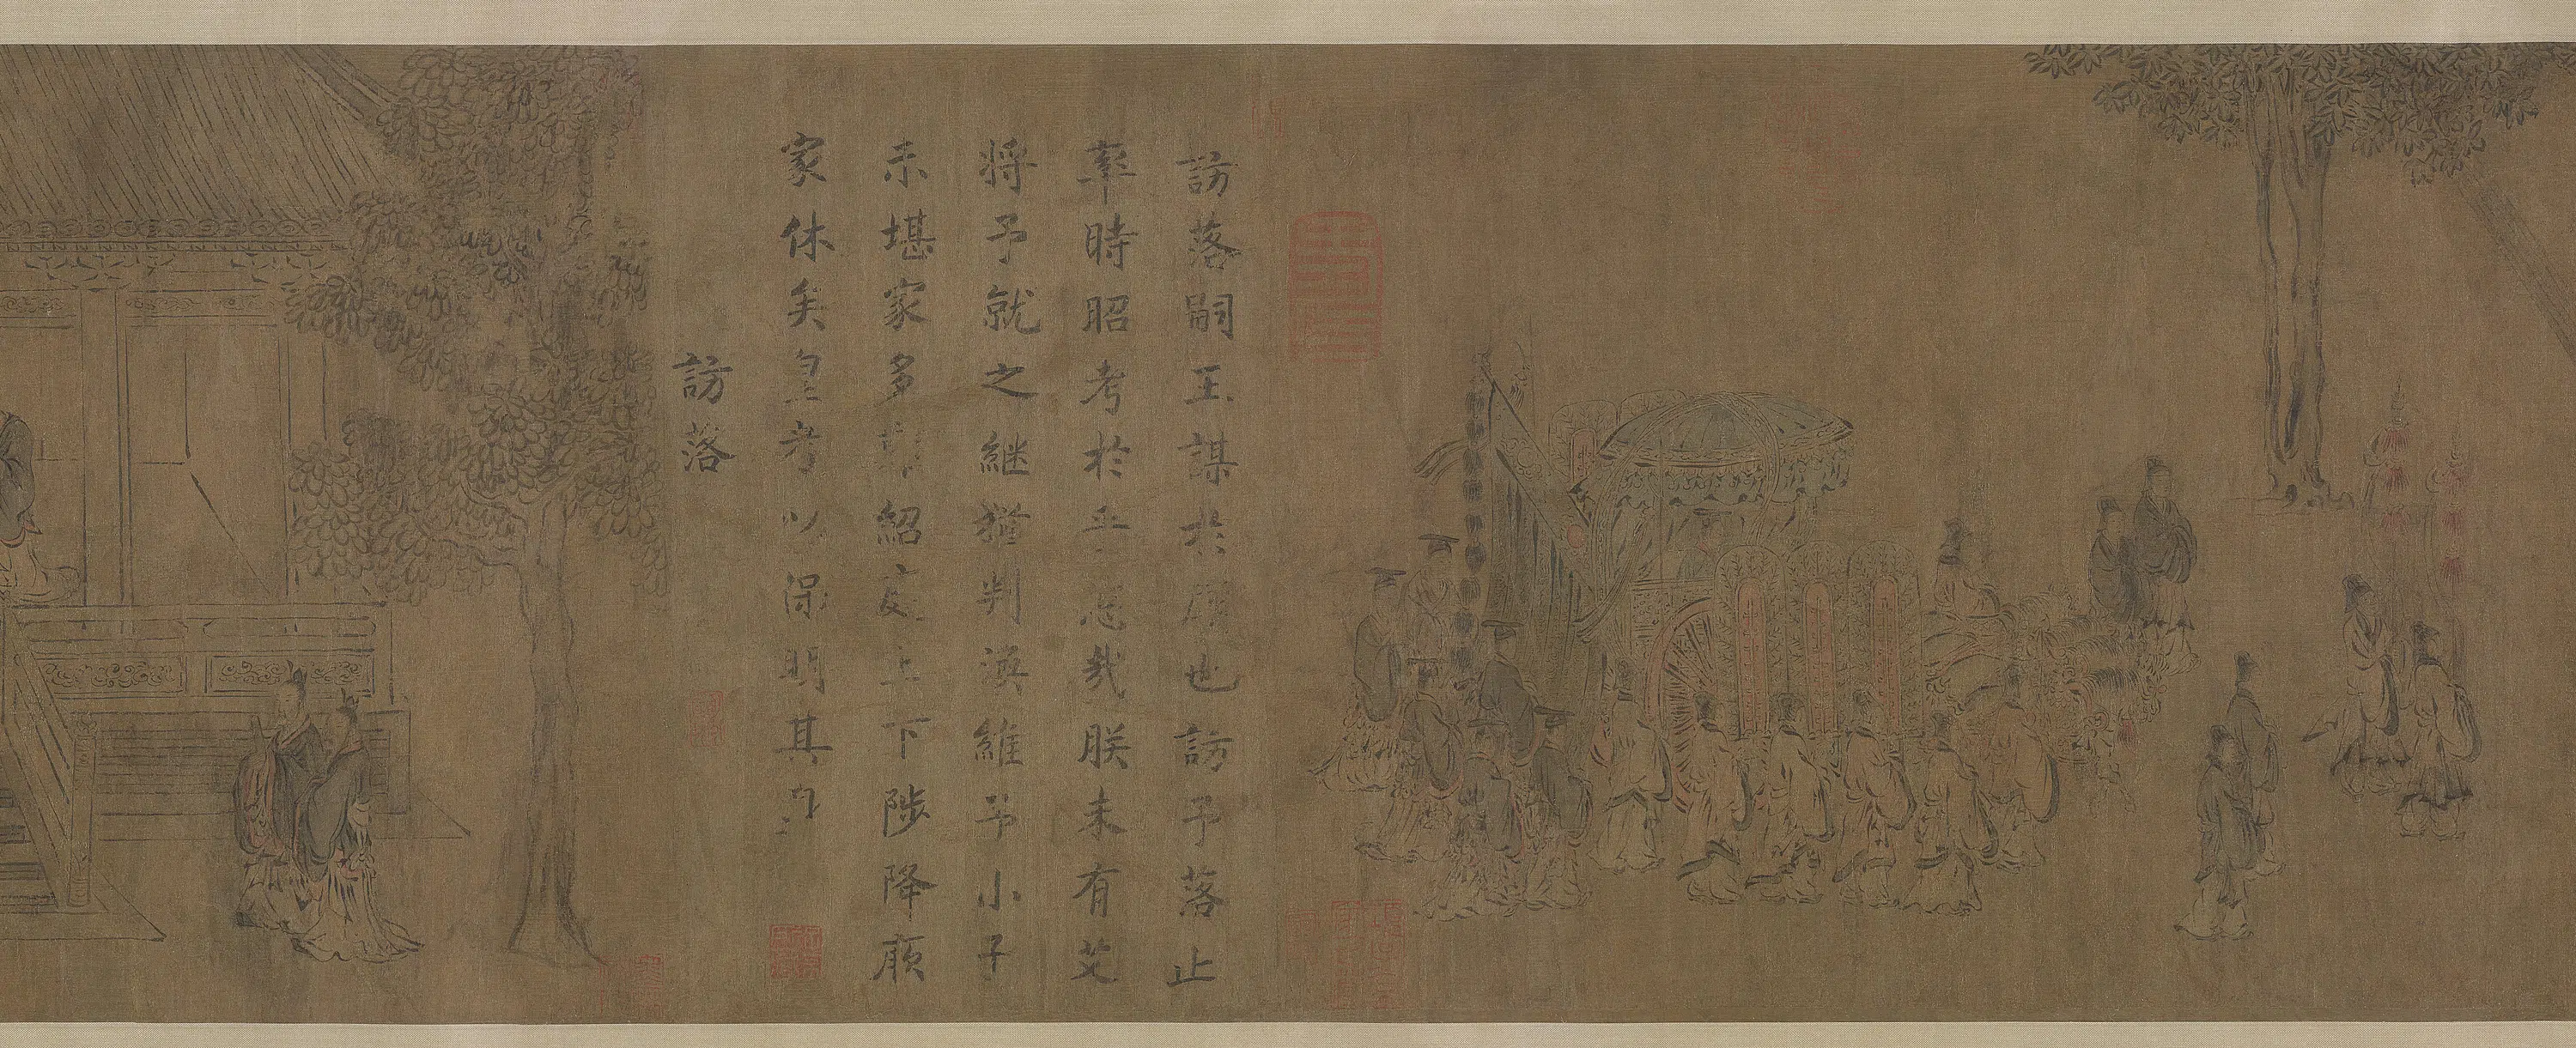 訪落嗣王謀於廟也訪予落止
率時昭考於乎悠哉朕未有艾
將予就之繼猶判渙維予小子
未堪家多難紹庭上下陟降厥
家休矣皇考以保明其身
訪落